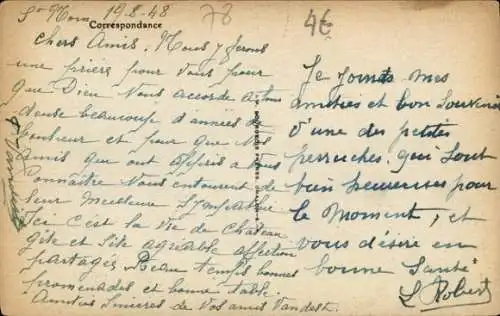 19-8-48
78
4€
Correspondance
chers Amis. Nous y ferons
une prière pour vous pour
que Dieu vous accorde a tous
beaucoup d'années de
bonheur et pour que
amis que ont appris a vous
connaître vous entourent de
leur meilleure
Ici c'est la vie de Château
gîte et site agréable affection
partagée Beau temps bonnes
promenades et bonne table.
Amitiés sincères de vos amis
Je joints mes
amitiés et bon souvenir
d'une des petites
perruches. qui sont
bien heureuses pour
le moment, et
vous désire en
bonne santé
L Robert